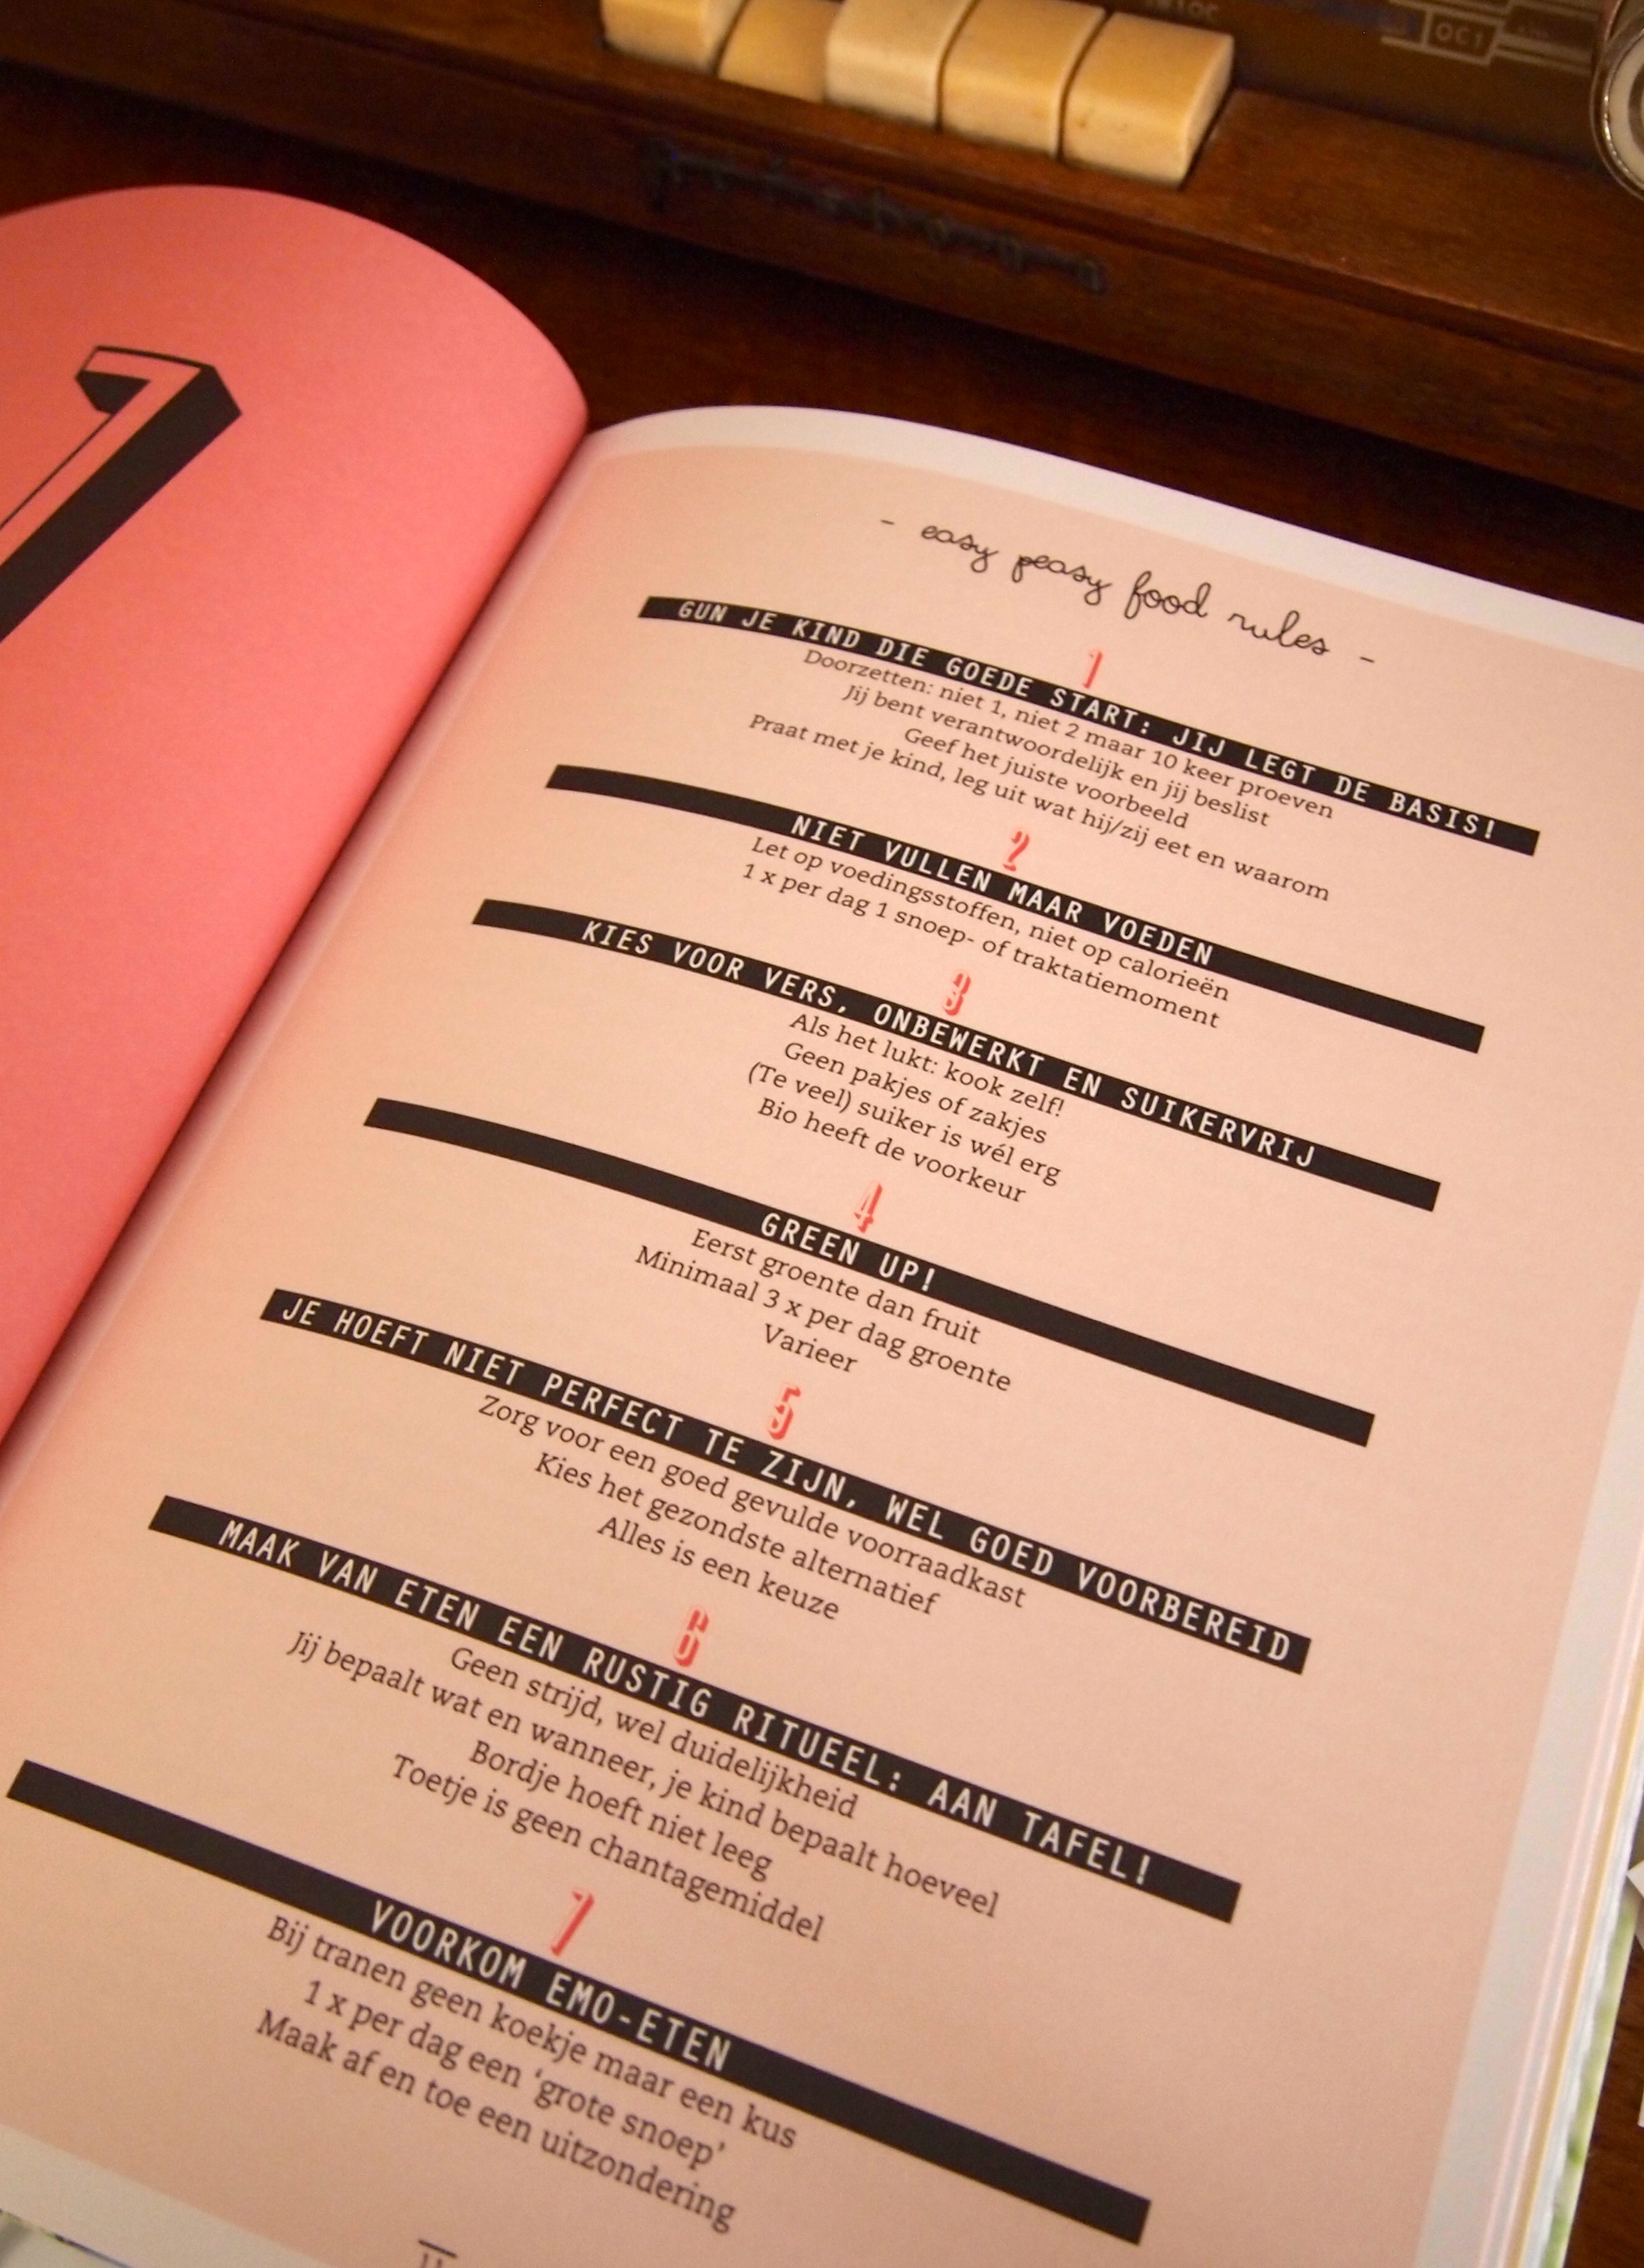 OC1
1
- easy peasy food rules -
1
GUN JE KIND DIE GOEDE START: JIJ LEGT DE BASIS!
Doorzetten: niet 1, niet 2 maar 10 keer proeven
Jij bent verantwoordelijk en jij beslist
Geef het juiste voorbeeld
Praat met je kind, leg uit wat hij/zij eet en waarom
2
NIET VULLEN MAAR VOEDEN
Let op voedingsstoffen, niet op calorieën
1 x per dag 1 snoep- of traktatiemoment
3
KIES VOOR VERS, ONBEWERKT EN SUIKERVRIJ
Als het lukt: kook zelf!
Geen pakjes of zakjes
(Te veel) suiker is wél erg
Bio heeft de voorkeur
4
GREEN UP!
Eerst groente dan fruit
Minimaal 3 x per dag groente
Varieer
5
JE HOEFT NIET PERFECT TE ZIJN, WEL GOED VOORBEREID
Zorg voor een goed gevulde voorraadkast
Kies het gezondste alternatief
Alles is een keuze
6
MAAK VAN ETEN EEN RUSTIG RITUEEL: AAN TAFEL!
Geen strijd, wel duidelijkheid
Jij bepaalt wat en wanneer, je kind bepaalt hoeveel
Bordje hoeft niet leeg
Toetje is geen chantagemiddel
7
VOORKOM EMO-ETEN
Bij tranen geen koekje maar een kus
1 x per dag een ‘grote snoep’
Maak af en toe een uitzondering